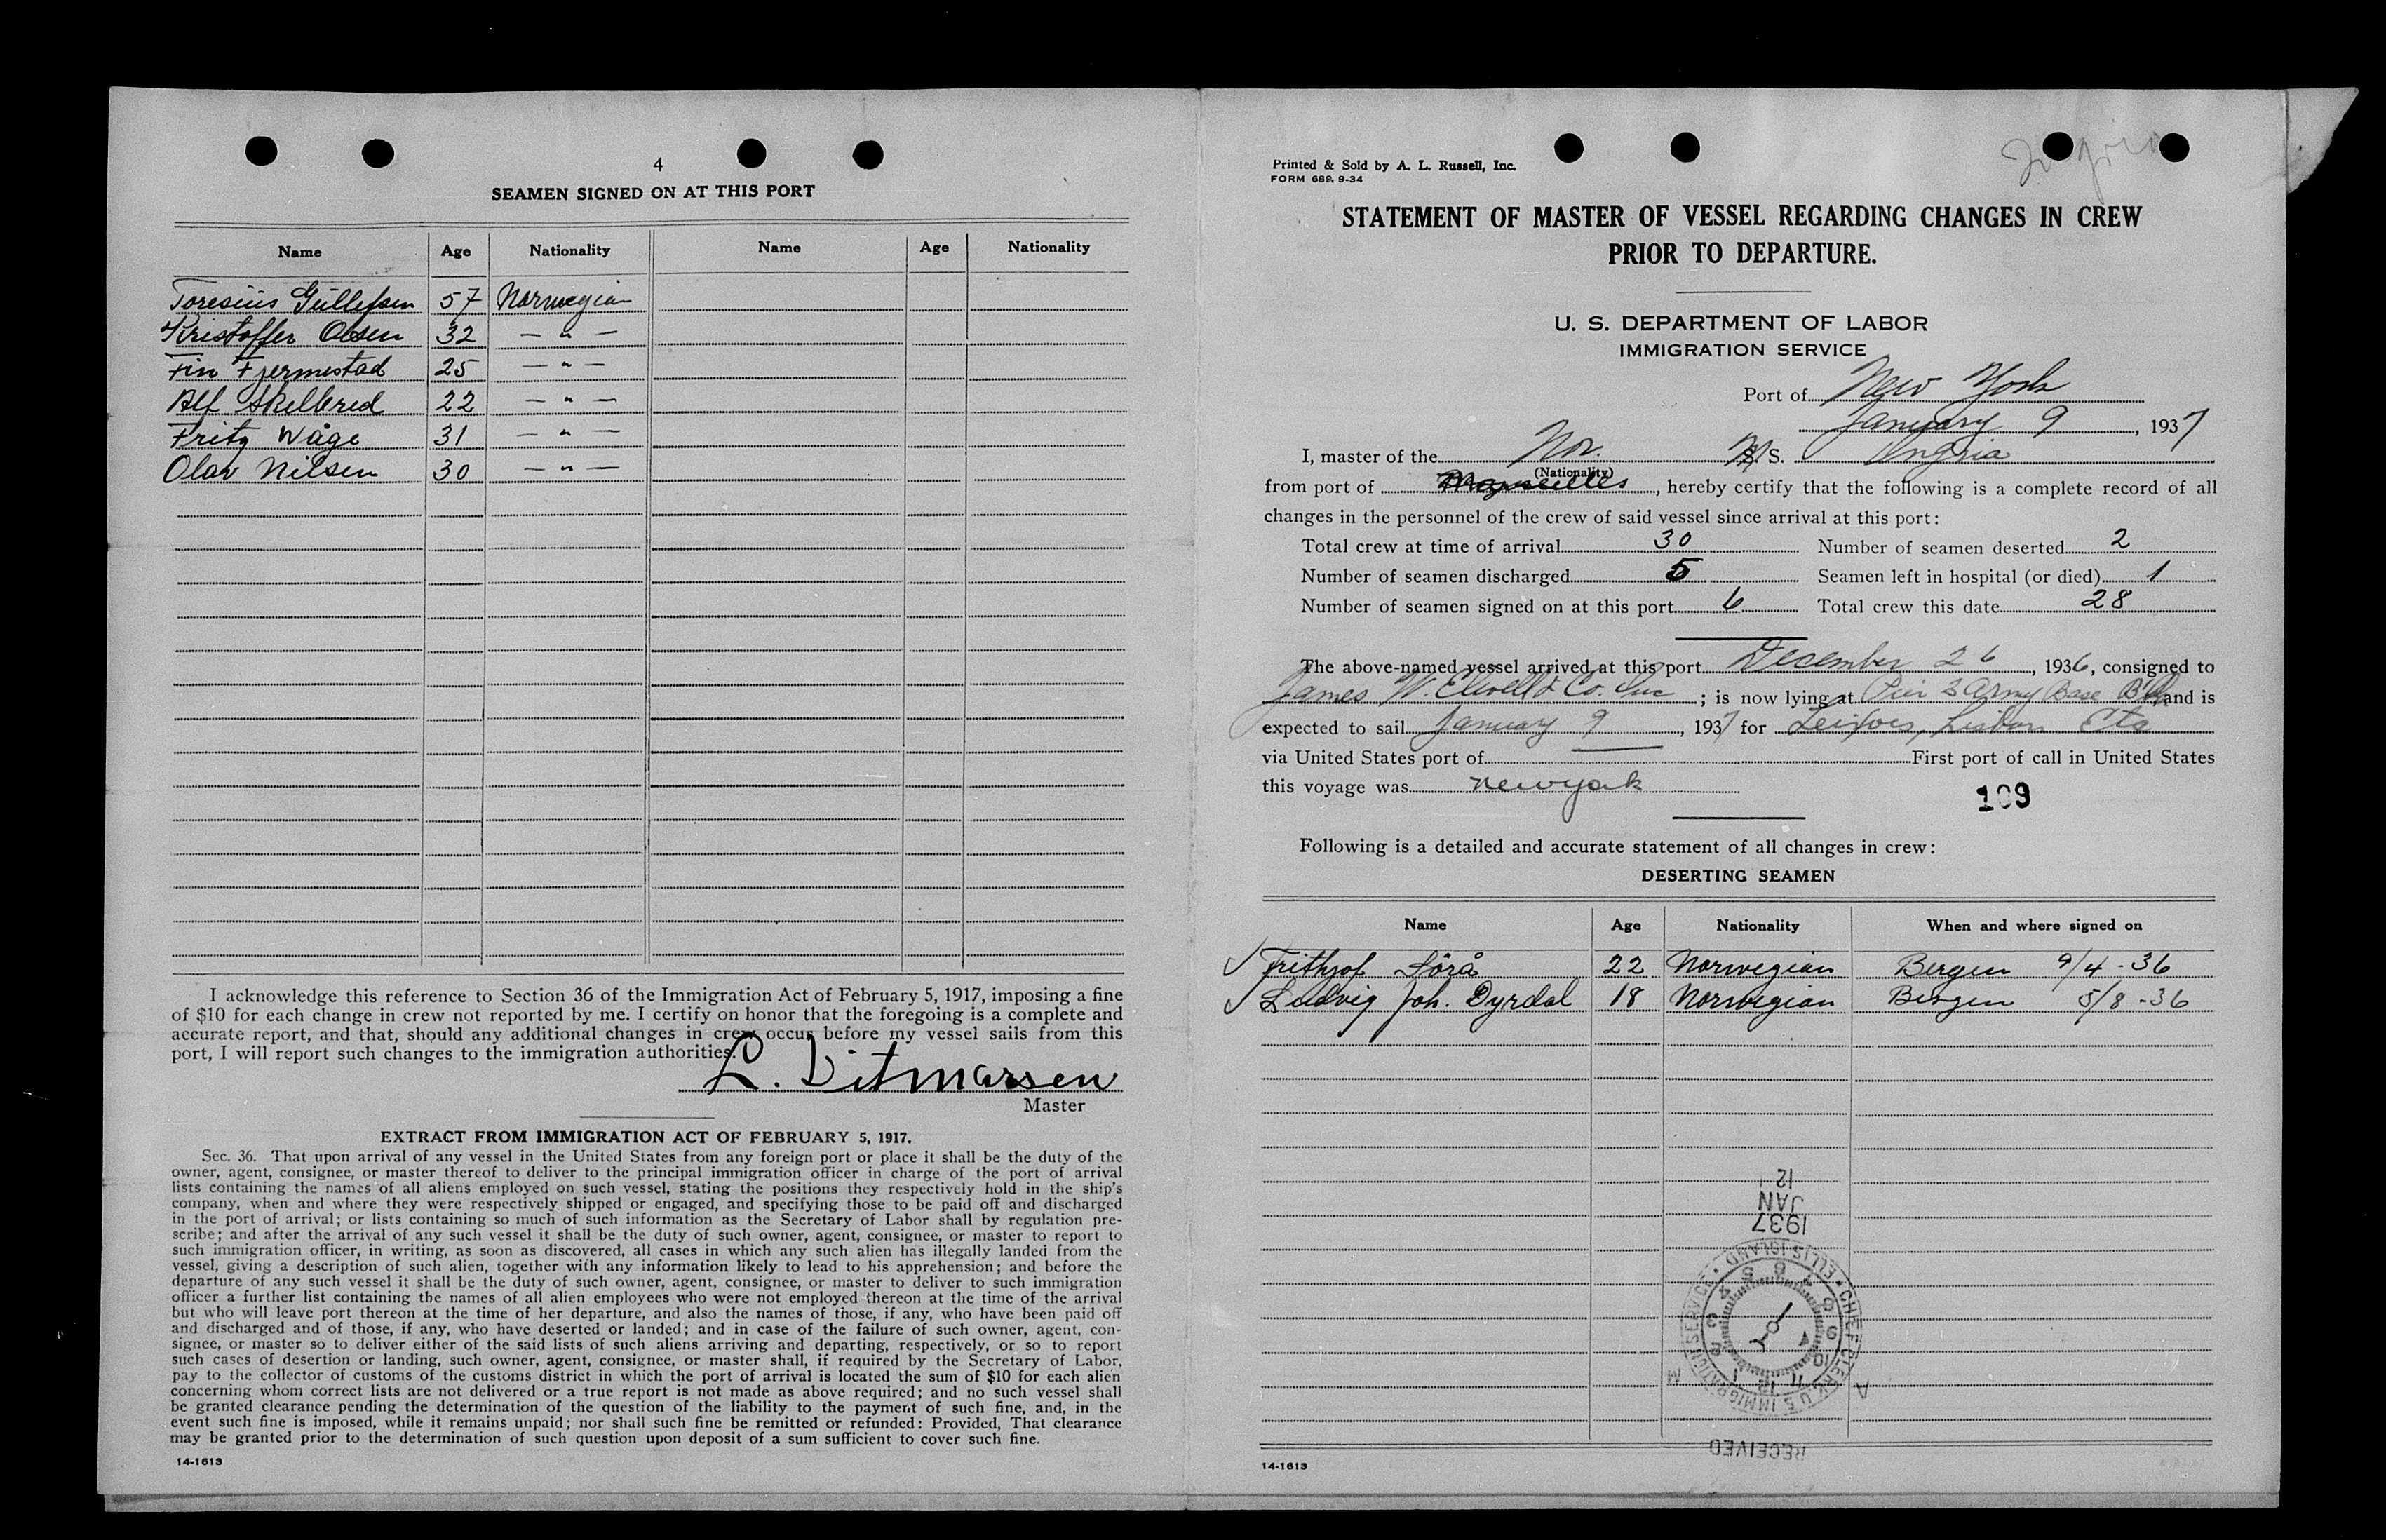 4
SEAMEN SIGNED ON AT THIS PORT
Name Age Nationality Name Age Nationality
Toresius Gullefsen 57 Norwegian
Kristoffer Olsen 32 — " —
Fin Fjermestad 25 — " —
Alf Skelbred 22 — " —
Fritz Wåge 31 — " —
Olav Nilsen 30 — " —
I acknowledge this reference to Section 36 of the Immigration Act of February 5, 1917, imposing a fine
of $10 for each change in crew not reported by me. I certify on honor that the foregoing is a complete and
accurate report, and that, should any additional changes in crew occur before my vessel sails from this
port, I will report such changes to the immigration authorities.
L. Ditmarsen
Master
EXTRACT FROM IMMIGRATION ACT OF FEBRUARY 5, 1917.
Sec. 36. That upon arrival of any vessel in the United States from any foreign port or place it shall be the duty of the
owner, agent, consignee, or master thereof to deliver to the principal immigration officer in charge of the port of arrival
lists containing the names of all aliens employed on such vessel, stating the positions they respectively hold in the ship's
company, when and where they were respectively shipped or engaged, and specifying those to be paid off and discharged
in the port of arrival; or lists containing so much of such information as the Secretary of Labor shall by regulation pre-
scribe; and after the arrival of any such vessel it shall be the duty of such owner, agent, consignee, or master to report to
such immigration officer, in writing, as soon as discovered, all cases in which any such alien has illegally landed from the
vessel, giving a description of such alien, together with any information likely to lead to his apprehension; and before the
departure of any such vessel it shall be the duty of such owner, agent, consignee, or master to deliver to such immigration
officer a further list containing the names of all alien employees who were not employed thereon at the time of the arrival
but who will leave port thereon at the time of her departure, and also the names of those, if any, who have been paid off
and discharged and of those, if any, who have deserted or landed; and in case of the failure of such owner, agent, con-
signee, or master so to deliver either of the said lists of such aliens arriving and departing, respectively, or so to report
such cases of desertion or landing, such owner, agent, consignee, or master shall, if required by the Secretary of Labor,
pay to the collector of customs of the customs district in which the port of arrival is located the sum of $10 for each alien
concerning whom correct lists are not delivered or a true report is not made as above required; and no such vessel shall
be granted clearance pending the determination of the question of the liability to the payment of such fine, and, in the
event such fine is imposed, while it remains unpaid; nor shall such fine be remitted or refunded: Provided, That clearance
may be granted prior to the determination of such question upon deposit of a sum sufficient to cover such fine.
14-1613
Printed & Sold by A. L. Russell, Inc.
FORM 689, 9-34
STATEMENT OF MASTER OF VESSEL REGARDING CHANGES IN CREW
PRIOR TO DEPARTURE.
U. S. DEPARTMENT OF LABOR
IMMIGRATION SERVICE
Port of New York
January 9, 1937
I, master of the Nor. M/S. Ingria
(Nationality)
from port of Marseilles, hereby certify that the following is a complete record of all
changes in the personnel of the crew of said vessel since arrival at this port:
Total crew at time of arrival 30 Number of seamen deserted 2
Number of seamen discharged 5 Seamen left in hospital (or died) 1
Number of seamen signed on at this port 6 Total crew this date 28
The above-named vessel arrived at this port December 26, 1936, consigned to
James W. Elwell & Co. Inc; is now lying at Pier 3 Army Base B'klyn and is
expected to sail January 9, 1937 for Leixoes, Lisbon Etc
via United States port of — First port of call in United States
this voyage was New york
109
Following is a detailed and accurate statement of all changes in crew:
DESERTING SEAMEN
Name Age Nationality When and where signed on
✓ Frithjof Sörå 22 Norwegian Bergen 9/4-36
✓ Ludvig Joh. Dyrdal 18 Norwegian Bergen 5/8-36
12
JAN
1937
CHIEF CLERK U S IMMIGRATION SERVICE • ELLIS ISLAND •
RECEIVED
14-1613